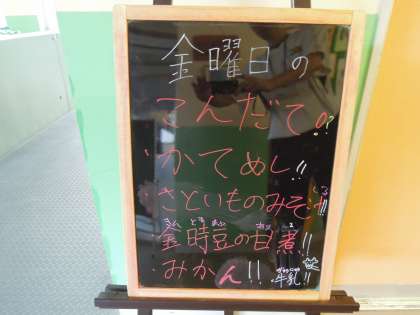 金曜日の
こんだて!?
・かてめし!!
・さといものみそ汁!!
・金時豆の甘煮!!
・みかん!! 牛乳!!